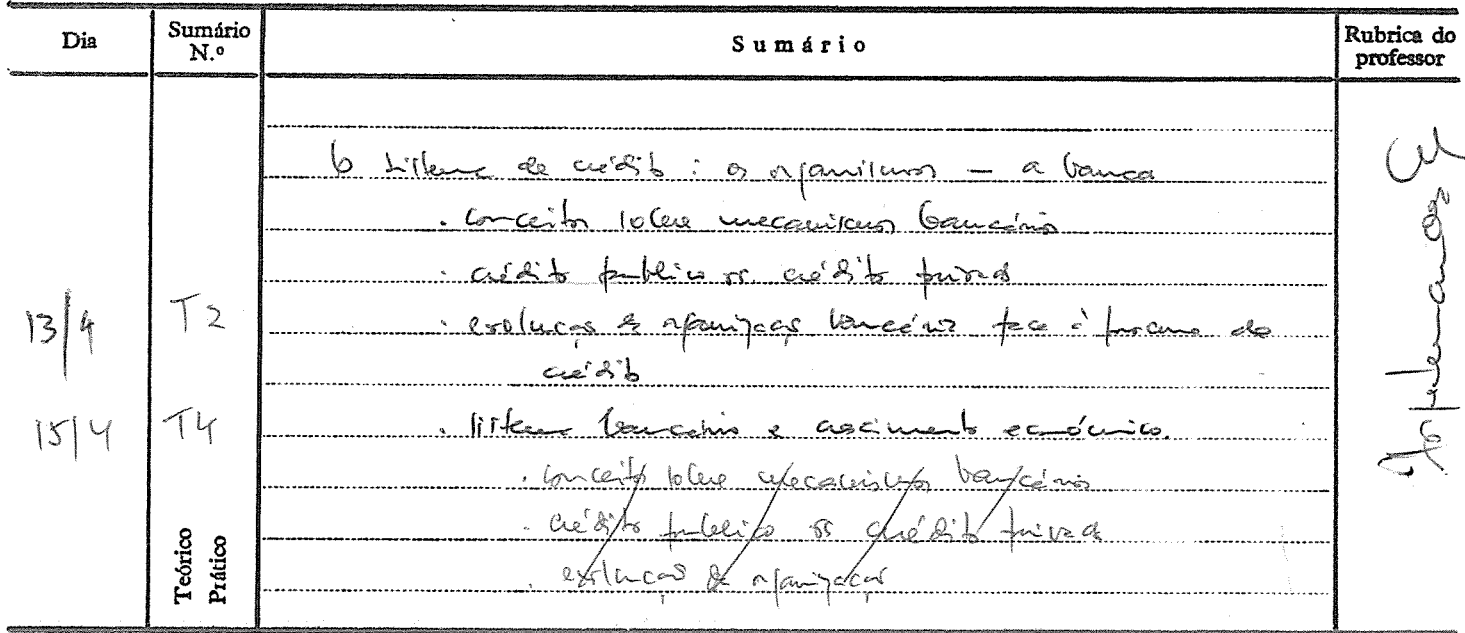 Dia
Sumário N.º
Sumário
Rubrica do professor
O sistema de crédito : os organismos — a banca
. Conceitos sobre mecanismos bancários
. crédito publico vs. crédito privado
13/4 T2
. evolução da organização bancária face à procura de
crédito
15/4 T4
. sistema bancário e crescimento económico.
. Conceitos sobre mecanismos bancários
. crédito publico vs crédito privado
. evolução da organização
Teórico
Prático